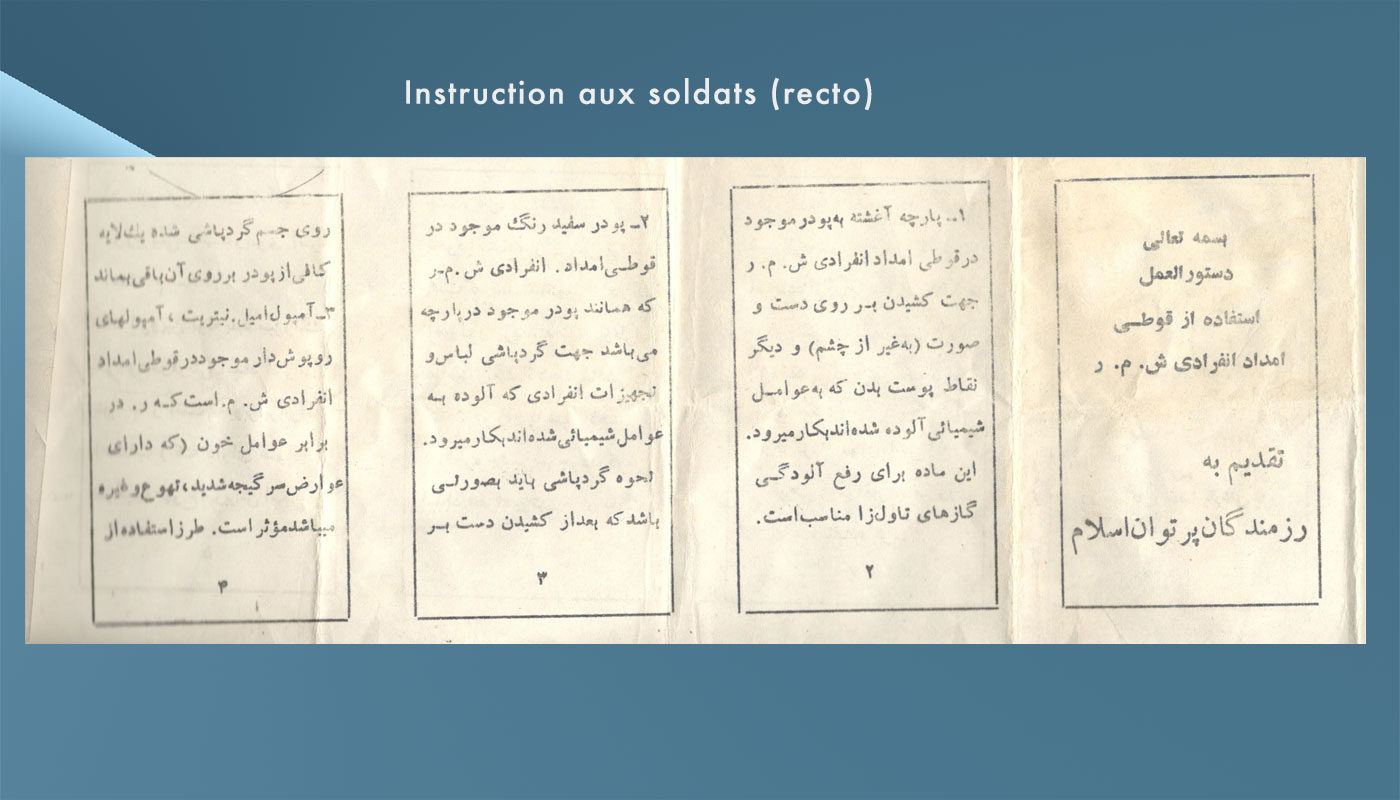 Instruction aux soldats (recto)
بسمه تعالی
دستورالعمل
استفاده از قوطـی
امداد انفرادی ش. م. ر
تقدیم به
رزمندگان پرتوان اسلام
۱ـ پارچه آغشته به پودر موجود
در قوطی امداد انفرادی ش. م. ر
جهت کشیدن بـر روی دست و
صورت (به غیر از چشم) و دیگر
نقاط پوست بدن که به عوامـل
شیمیائی آلوده شده‌اند بکار میرود.
این ماده برای رفع آلودگـی
گازهای تاول‌زا مناسب است.
۲
۲ـ پودر سفید رنگ موجود در
قوطـی امداد . انفرادی ش .م-ر
که همانند پودر موجود در پارچه
می‌باشد جهت گردپاشی لباس و
تجهیزات انفرادی که آلوده بـه
عوامل شیمیائی شده‌اند بکار میرود.
نحوه گردپاشی باید بصورتـی
باشد که بعد از کشیدن دست بـر
۳
روی جسم گردپاشی شده یك لایه
کافی از پودر بر روی آن باقی بماند
۳ـ آمپول امیل. نیتریت ، آمپولهای
روپوش‌دار موجود در قوطی امداد
انفرادی ش. م. است کـه ر. در
برابر عوامل خون (که دارای
عوارض سرگیجه شدید، تهوع و غیره
میباشد مؤثر است. طرز استفاده از
۴